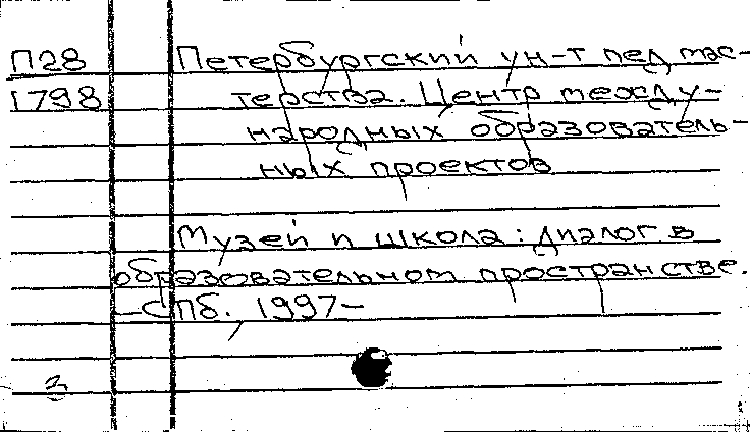 П28
1798
Петербургский ун-т пед. мас-
терства. Центр между-
народных образователь-
ных проектов
Музей и школа: диалог в
образовательном пространстве.
–СПб. 1997–
2